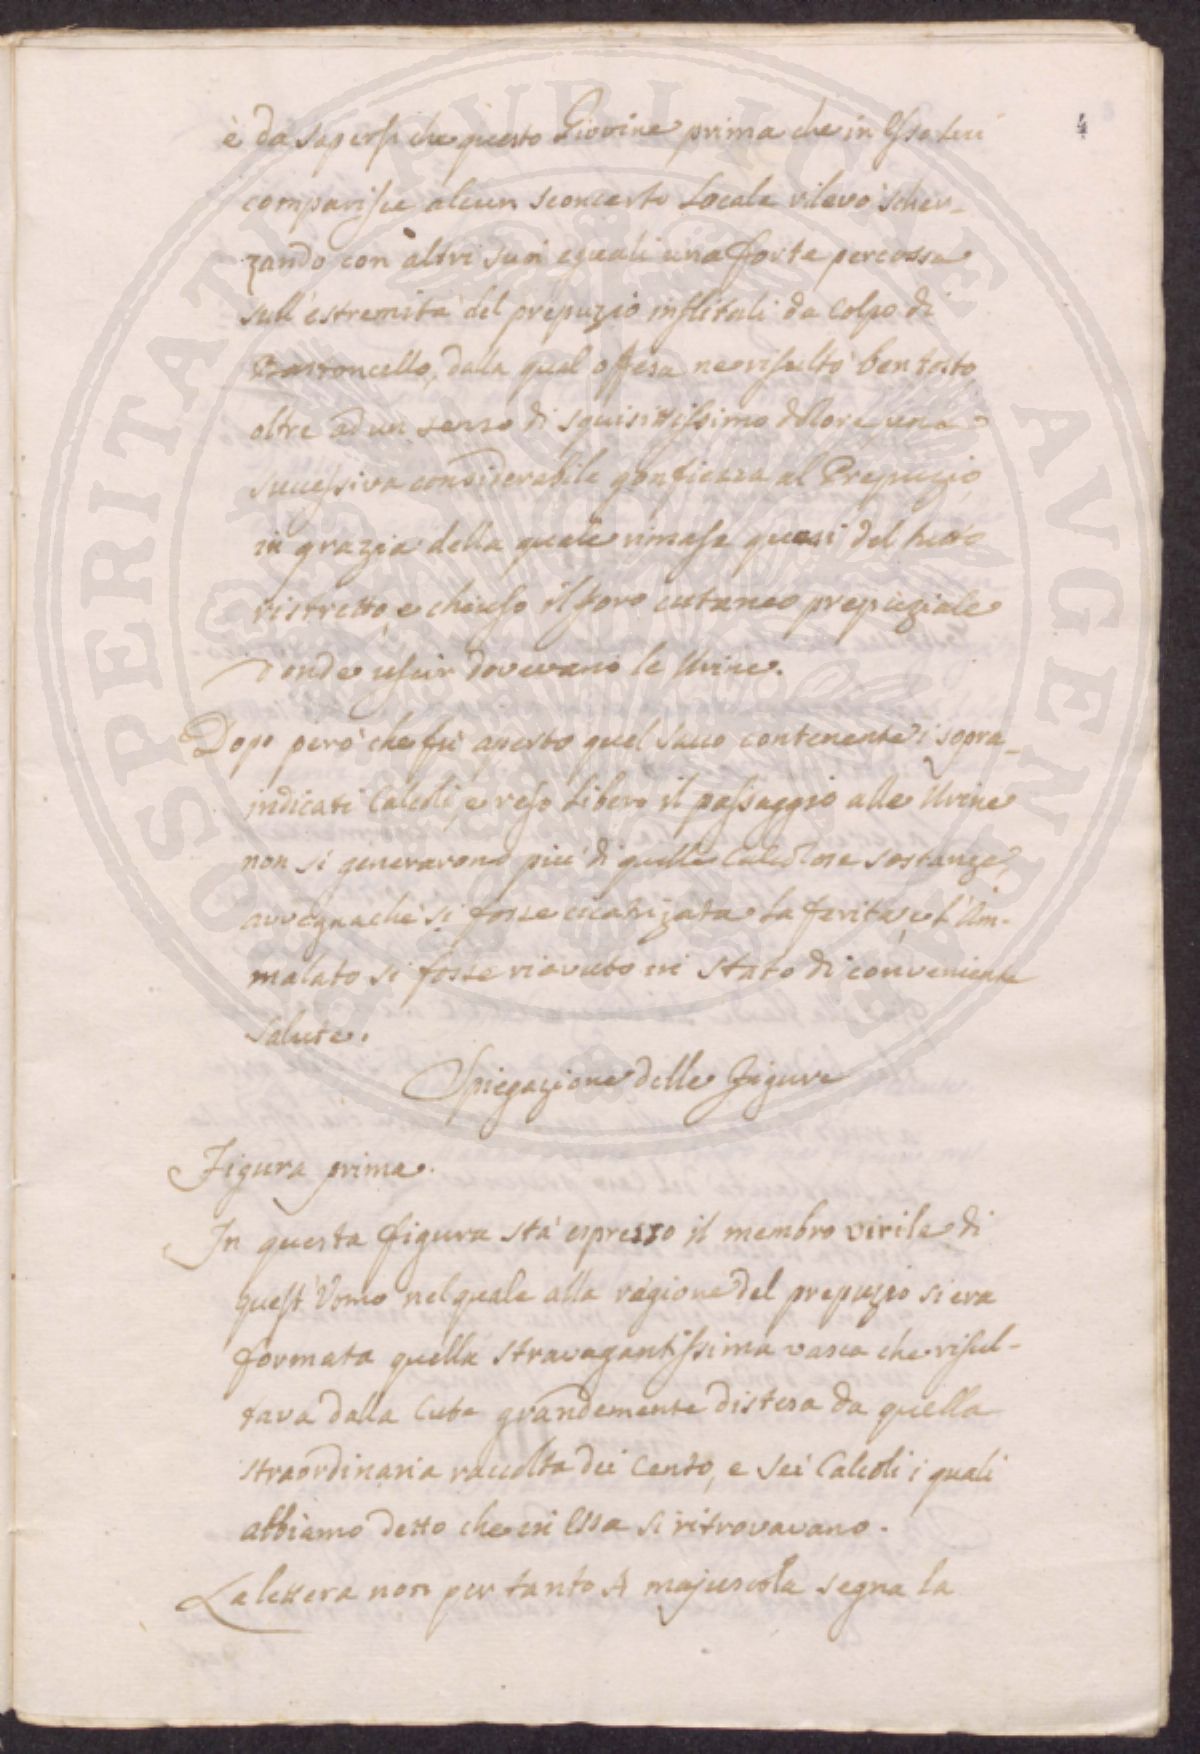 4
è da sapersi che questo Giovine prima che in Esso lui
comparisse alcun sconcerto Locale rilevò scher-
zando con altri suoi eguali una forte percossa
sull'estremità del prepuzio inflitali da colpo di
Bastoncello, dalla qual offesa ne risultò ben tosto
oltre ad un senso di squisitissimo dolore una
successiva considerabile gonfiezza al Prepuzio,
in grazia della quale rimase quasi del tutto
ristretto, e chiuso il foro cutaneo prepuziale
d'onde uscir dovevano le Urine.
Dopo però che fù aperto quel sacco contenente i sopra-
indicati Calcoli, e reso libero il passaggio alle Urine
non si generarono più di quelle Calcolose sostanze,
avvegnachè si fosse cicatrizata la ferita, e l'Am-
malato si fosse riavuto in stato di conveniente
salute.
Spiegazione delle Figure
Figura prima.
In questa figura stà espresso il membro virile di
quest'Uomo nel quale alla ragione del prepuzio si era
formata quella stravagantissima vasca che risul-
tava dalla Cute grandemente distesa da quella
straordinaria raccolta dei Cento, e sei Calcoli i quali
abbiamo detto che in Essa si ritrovavano.
La lettera non per tanto A majuscola segna la
PROSPERITATI PVBLICAE AVGENDAE